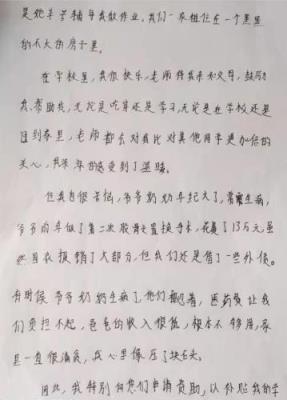 是她辛苦辅导我做作业。我们一家租住在一个黑黑
的不大的房子里。
在学校里,我很快乐,老师待我亲如父母,鼓励
我、帮助我,无论是吃穿还是学习,无论是在学校还是
回到家里,老师都会对我比对其他同学更加倍的
关心,我深深的感受到了温暖。
但我也很苦恼,爷爷奶奶年纪大了,常常生病,
爷爷前年做了第二次股骨头置换手术,花费了13万元,虽
然国家报销了大部分,但我们还是借了一些外债。
有时候爷爷奶奶生病了,他们都忍着,医药费让我
们负担不起,爸爸的收入很低,根本不够用,家
里一直很清贫,我心里像压了块石头。
因此,我特别向您们申请资助,以补贴我的学